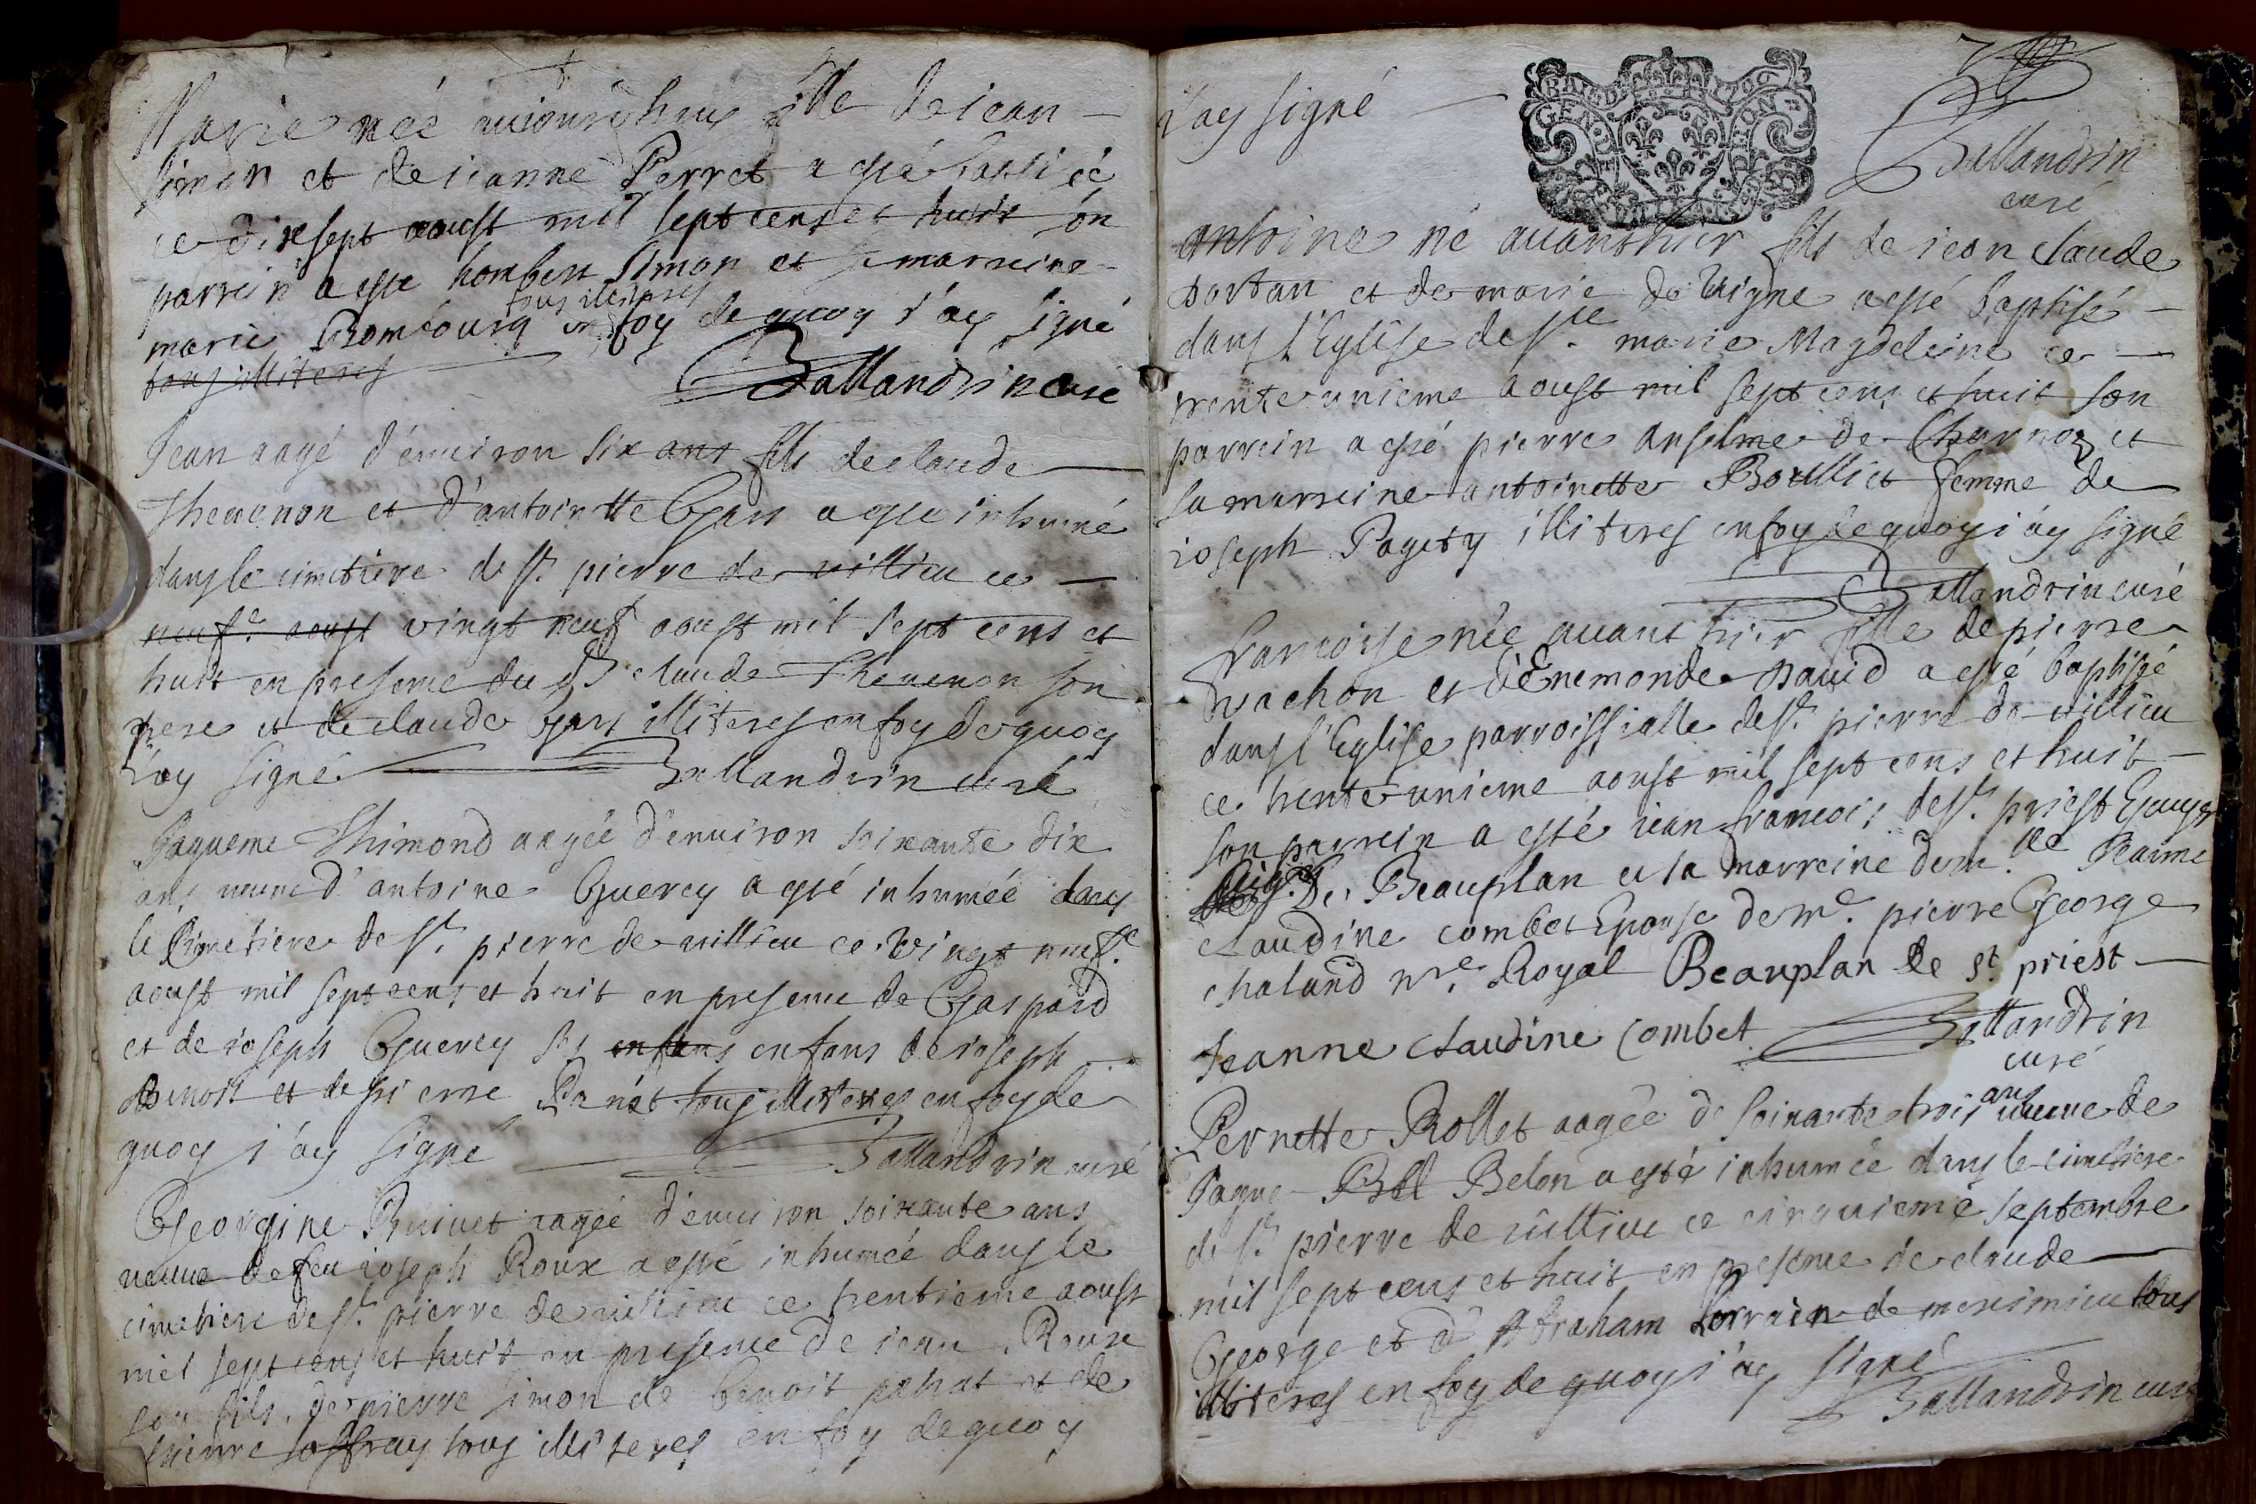 Marie née aujourdhuy fille de iean
simon et de ieanne Perret a esté baptisée
ce dixsept aoust mil sept cens et huit son
parrein a esté hombert simon et sa marreine
tous illiteres
marie Rombourg en foy de quoy i'ay signé
tous illiteres
Ballandrin curé
Jean aagé d'enuiron six ans fils de claude
Theuenon et d'antoinette Gars a esté inhumé
dans le cimetiere de st. pierre de villieu ce
neufe. aoust vingt neuf aoust mil sept cens et
huit en presence du dt claude Theuenon son
pere et de claude Gars illiteres en foy de quoy
i'ay signé Ballandrin curé
Jaqueme Thimond aagée d'enuiron soixante dix
ans veuue d'antoine Guerey a esté inhumée dans
le cimetiere de st. pierre de villieu ce vingt neufe.
aoust mil sept cens et huit en presence de Gaspard
et de ioseph Guerey ses enfans enfans de ioseph
Benoit et de pierre Panet tous illiteres en foy de
quoy i'ay signé Ballandrin curé
Georgine Buiuet aagée d'enuiron soixante ans
veuue de feu ioseph Roux a esté inhumée dans le
cimetiere de st. pierre de villieu ce trentieme aoust
mil sept cens et huit en presence de iean Roux
son fils, de pierre simon de benoit pahat et de
pierre ioffray tous illiteres en foy de quoy
i'ay signé
GENERALITE
DIJON
Ballandrin
curé
antoine né auanthier fils de iean claude
dortan et de marie de Vigne a esté baptisé
dans l'Eglise de ste. marie Magdeleine ce
trente unieme aoust mil sept cens et huit son
parrein a esté pierre anselme de Charnoz et
sa marreine antoinette Boulliet femme de
ioseph Pagety illiteres en foy de quoy i'ay signé
Ballandrin curé
francoise née auant hier fille de pierre
vachon et d'Enemonde Dauid a esté baptisée
dans l'Eglise parroissialle de st. pierre de villieu
ce trente unieme aoust mil sept cens et huit
son parrein a esté iean francois de st. priest Escuyer
Sigr. De Beauplan et sa marreine demlle. Jeanne
claudine combet Epouse de me. pierre George
chaland nre. Royal Beauplan de st priest
Jeanne claudine Combet Ballandrin
curé
Pernette Rollet aagée de soixante trois ans veuue de
Jaque Bel Belon a esté inhumée dans le cimetiere
de st. pierre de villieu ce cinquieme septembre
mil sept cens et huit en presence de claude
George et d'Abraham Lorrain de meximieu tous
illiteres en foy de quoy i'ay signé
Ballandrin curé